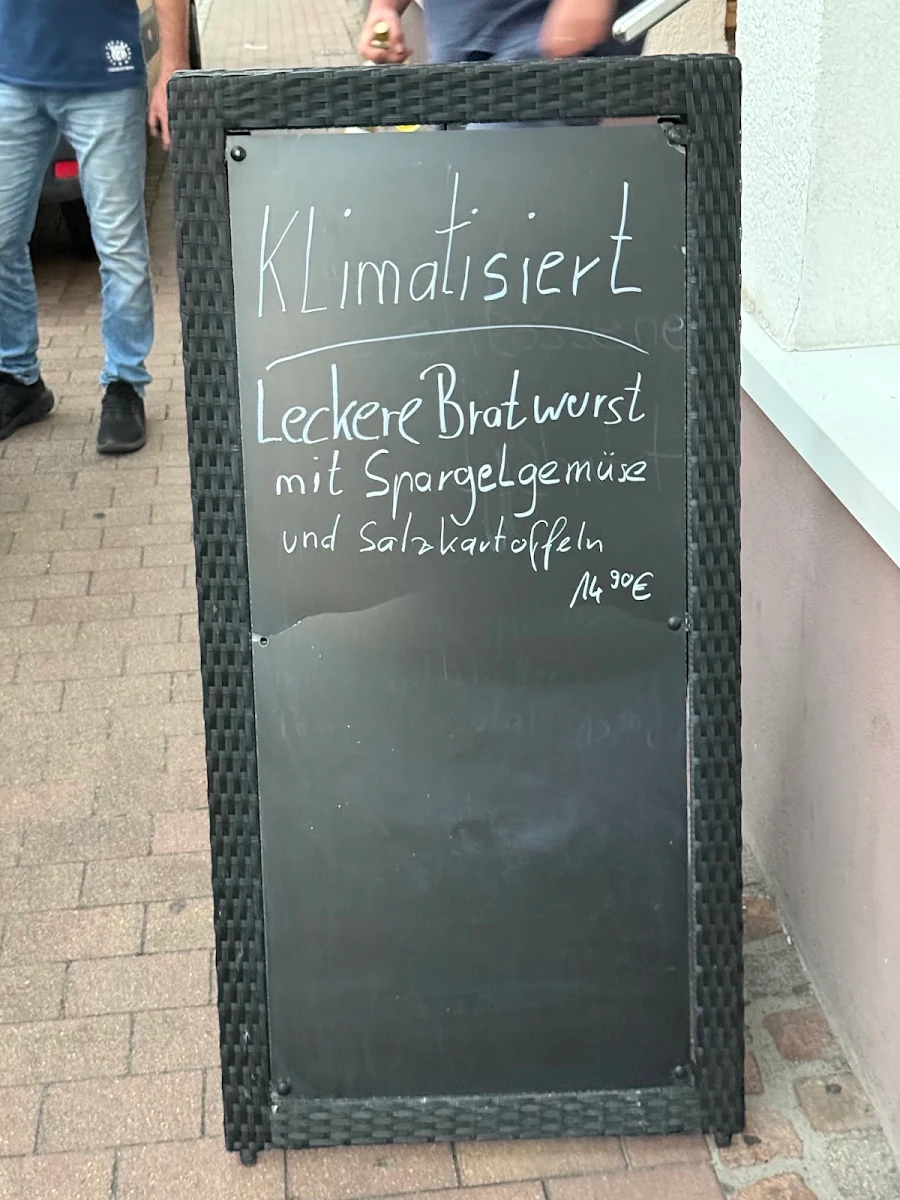 Klimatisiert
Leckere Bratwurst
mit Spargelgemüse
und Salzkartoffeln
14 90€